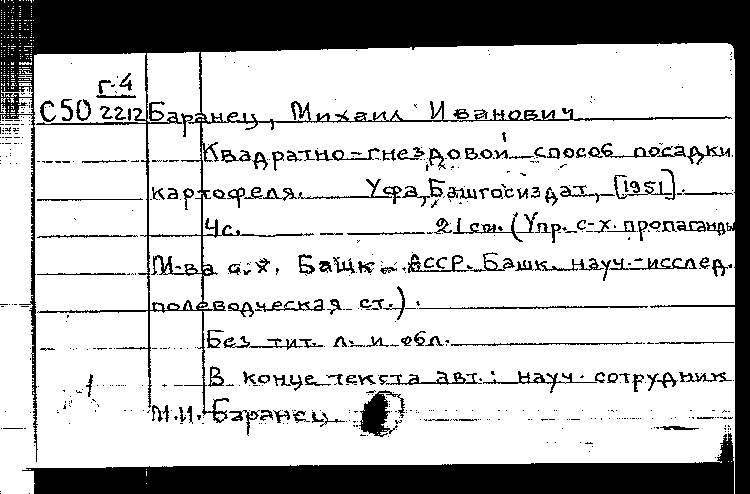 Г-4
С50 2212 Баранец, Михаил Иванович
Квадратно-гнездовой способ посадки
картофеля. Уфа, Башгосиздат, [1951].
4с. 21 см. (Упр. с-х. пропаганды
М-ва с.х. Башк. АССР. Башк. науч.-исслед.
полеводческая ст.).
Без тит. л. и обл.
В конце текста авт.: науч. сотрудник
М.И. Баранец.
1